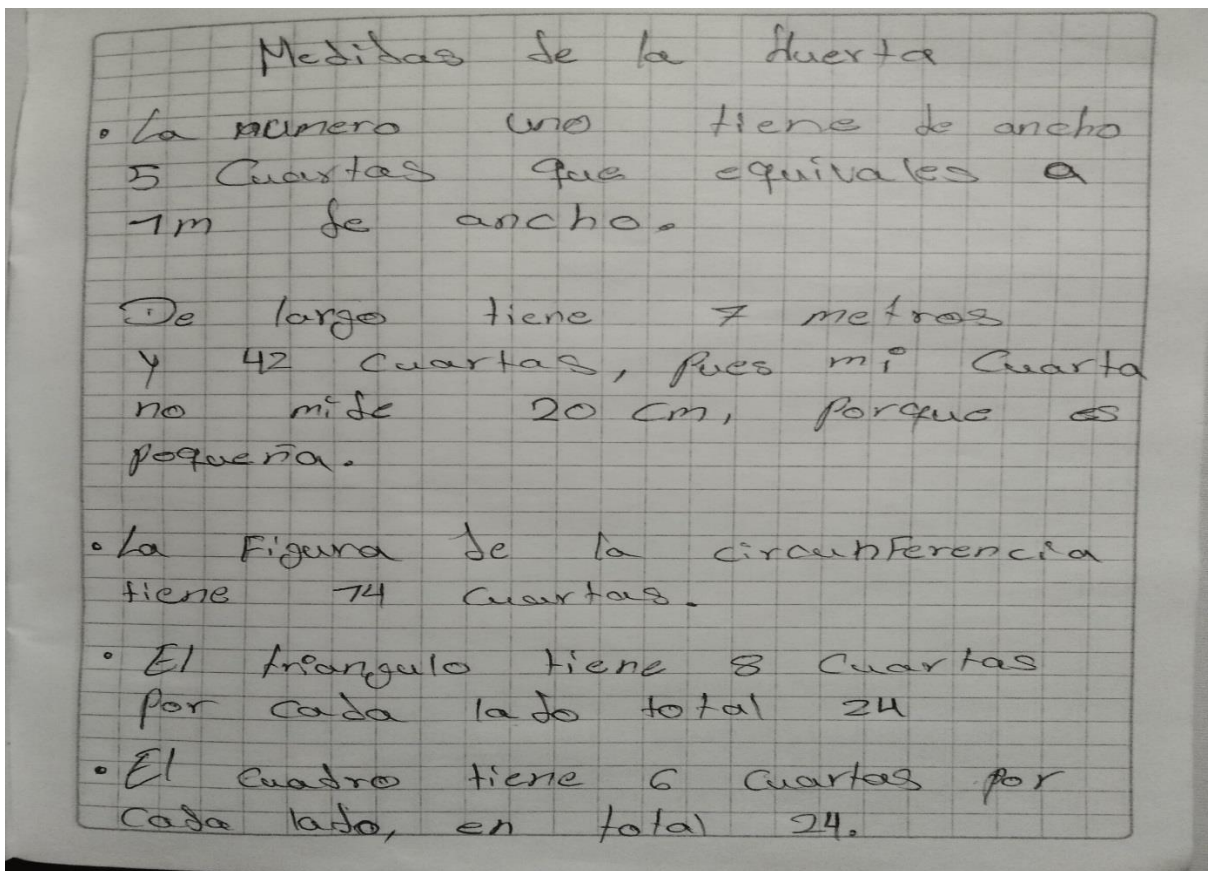 Medidas de la Huerta
• La numero uno tiene de ancho
5 Cuartas que equivales a
1m de ancho.
De largo tiene 7 metros
y 42 cuartas, pues mi Cuarta
no mide 20 cm, porque es
pequeña.
• La Figura de la circunferencia
tiene 14 cuartas.
• El triangulo tiene 8 Cuartas
por cada lado total 24
• El cuadro tiene 6 cuartas por
cada lado, en total 24.